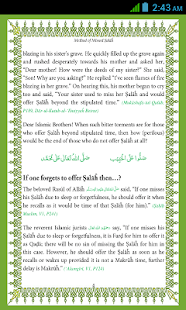 2:43 AM
Method of Missed Salāĥ
blazing in his sister's grave. He quickly filled up the grave again
and rushed desperately towards his mother and asked her,
"Dear mother! How were the deeds of my sister?" She said,
"Son! Why are you asking?" He replied? "I have found fire
blazing in her grave." On hearing this, his mother began to cry
too and said, "Your sister used to miss her Salāĥ and would
offer Ṣalāĥ beyond the stipulated time."
Dear Islamic Brothers! When such bitter torments are for those
who offer Ṣalāĥ beyond the stipulated time, then how (perilous)
would be the end of those who do not offer Ṣalāĥ at all!
صَلُّوا عَلَى الْحَبِيْب صَلَّى اللهُ تَعَالٰى عَلٰى مُحَمَّد
If one forgets to offer Ṣalāĥ then...?
The beloved Rasūl of Allah said, "If one misses
his Ṣalāĥ due to sleep or forgetfulness, he should offer it when
he recalls as it would be time of that Ṣalāĥ (for him)."
The reverent Islamic jurists say, "If one misses
his Ṣalāĥ due to sleep or forgetfulness, it is Farḍ for him to offer
it as Qaḍā; there will be no sin of missing the Ṣalāĥ for him in
this case. However, he should offer the Ṣalāĥ as soon as he
recalls or wakes up provided it is not a Makrūĥ time, further
delay is Makrūĥ."